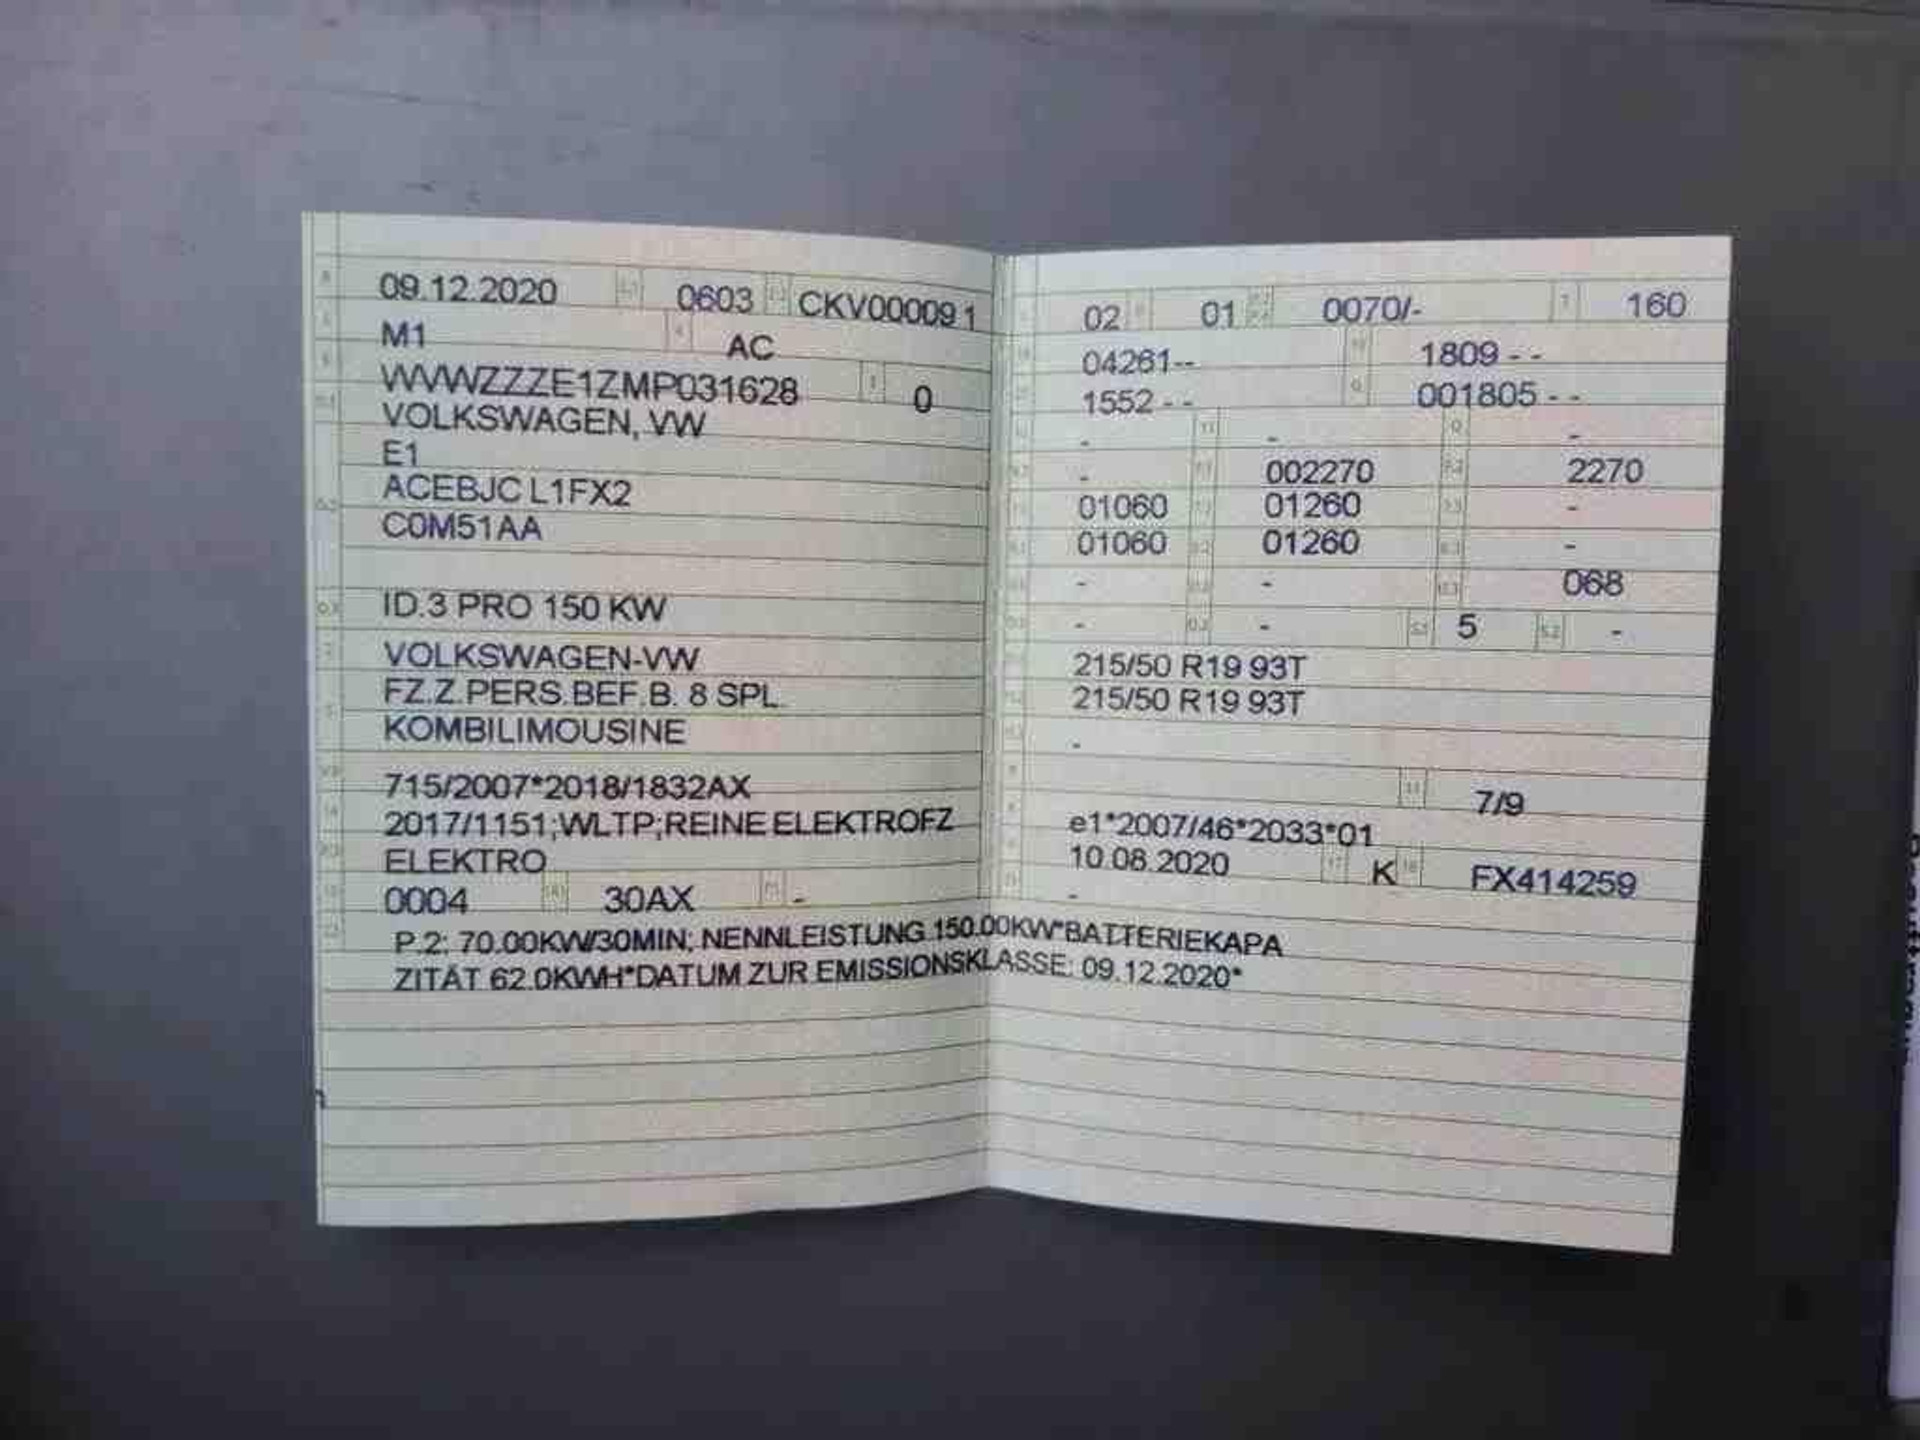 09.12.2020 0603 CKV000091
M1 AC
WVWZZZE1ZMP031628 0
VOLKSWAGEN, VW
E1
ACEBJC L1FX2
C0M51AA
ID.3 PRO 150 KW
VOLKSWAGEN-VW
FZ.Z.PERS.BEF.B. 8 SPL.
KOMBILIMOUSINE
715/2007*2018/1832AX
2017/1151;WLTP;REINE ELEKTROFZ
ELEKTRO
0004 30AX -
02 01 0070/- 160
04261-- 1809 - -
1552 - - 001805 - -
- - -
- 002270 2270
01060 01260 -
01060 01260 -
- - 068
- - 5 -
215/50 R19 93T
215/50 R19 93T
-
7/9
e1*2007/46*2033*01
10.08.2020 K FX414259
-
P.2: 70.00KW/30MIN; NENNLEISTUNG 150.00KW*BATTERIEKAPA
ZITÄT 62.0KWH*DATUM ZUR EMISSIONSKLASSE: 09.12.2020*